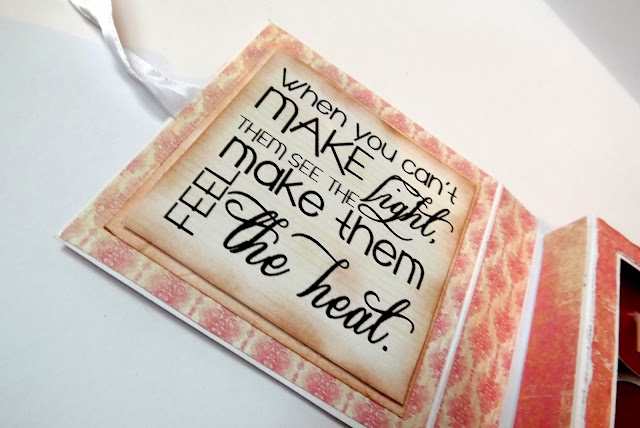 when you can't
MAKE
THEM SEE THE light,
make them
FEEL the heat.